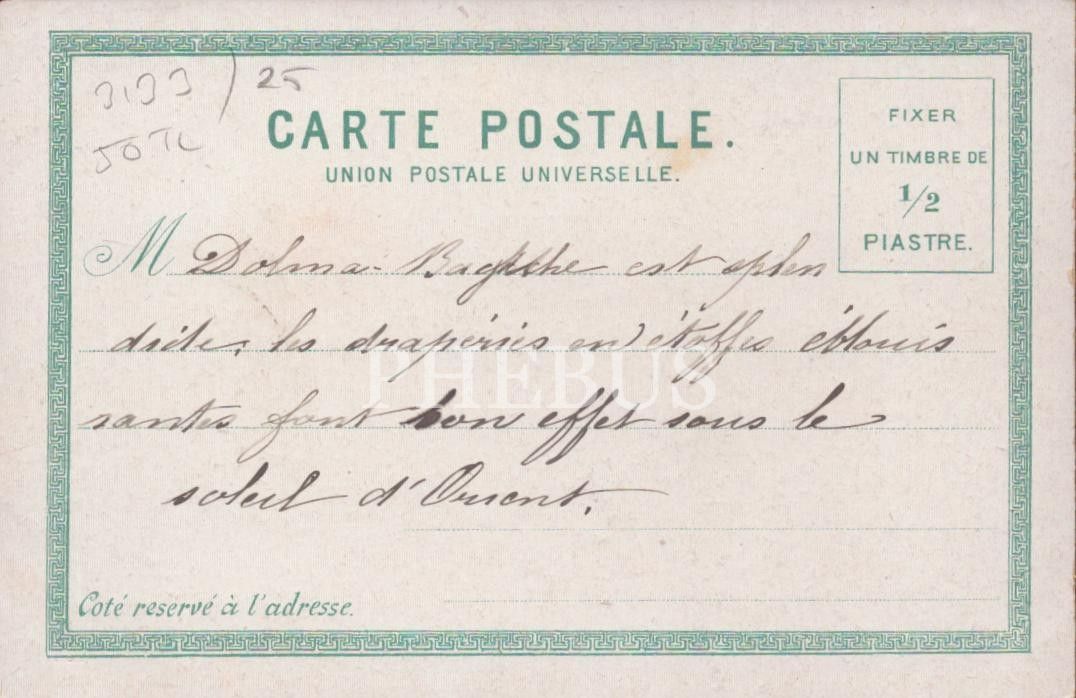 3193 / 25
50 TL
CARTE POSTALE.
UNION POSTALE UNIVERSELLE.
FIXER
UN TIMBRE DE
1/2
PIASTRE.
M Dolma-Bagtche est splen
dide, les draperies en étoffes éblouis
santes font bon effet sous le
soleil d'Orient.
PHEBUS
Coté reservé à l'adresse.